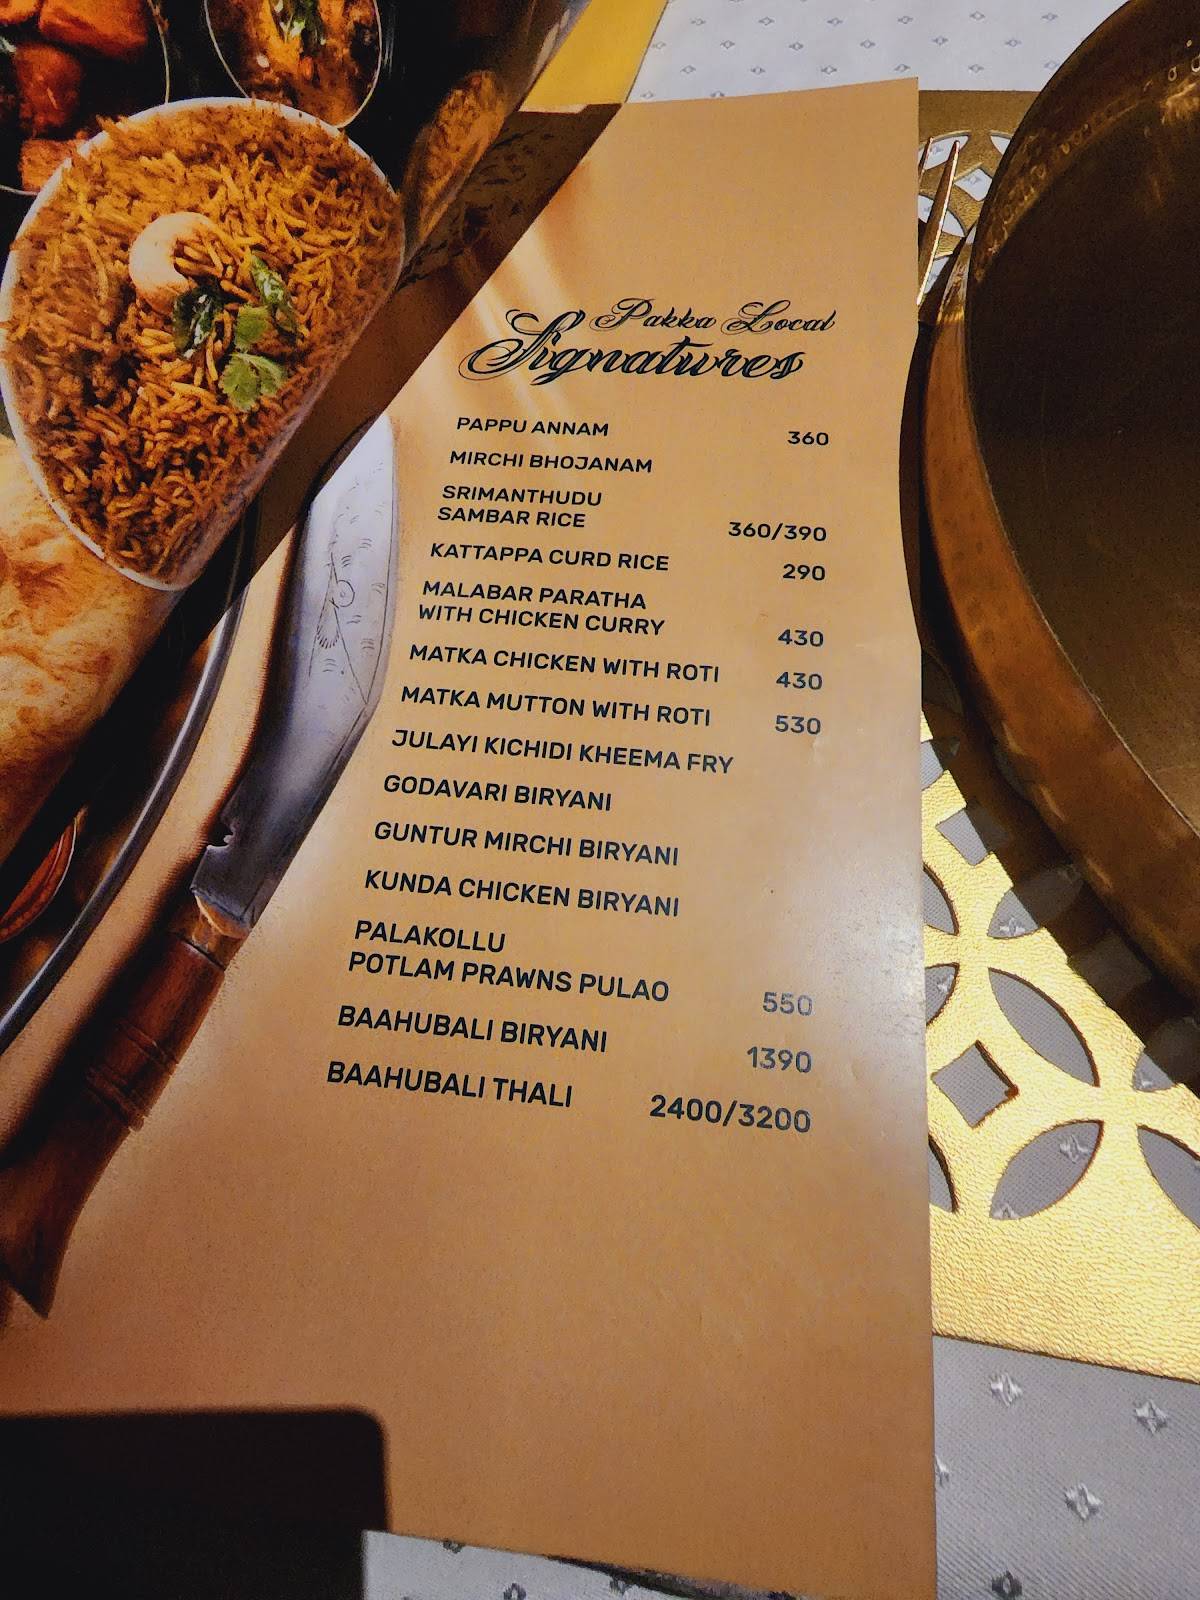 Pakka Local
Signatures
PAPPU ANNAM 360
MIRCHI BHOJANAM
SRIMANTHUDU
SAMBAR RICE 360/390
KATTAPPA CURD RICE 290
MALABAR PARATHA
WITH CHICKEN CURRY 430
MATKA CHICKEN WITH ROTI 430
MATKA MUTTON WITH ROTI 530
JULAYI KICHIDI KHEEMA FRY
GODAVARI BIRYANI
GUNTUR MIRCHI BIRYANI
KUNDA CHICKEN BIRYANI
PALAKOLLU
POTLAM PRAWNS PULAO 550
BAAHUBALI BIRYANI 1390
BAAHUBALI THALI 2400/3200